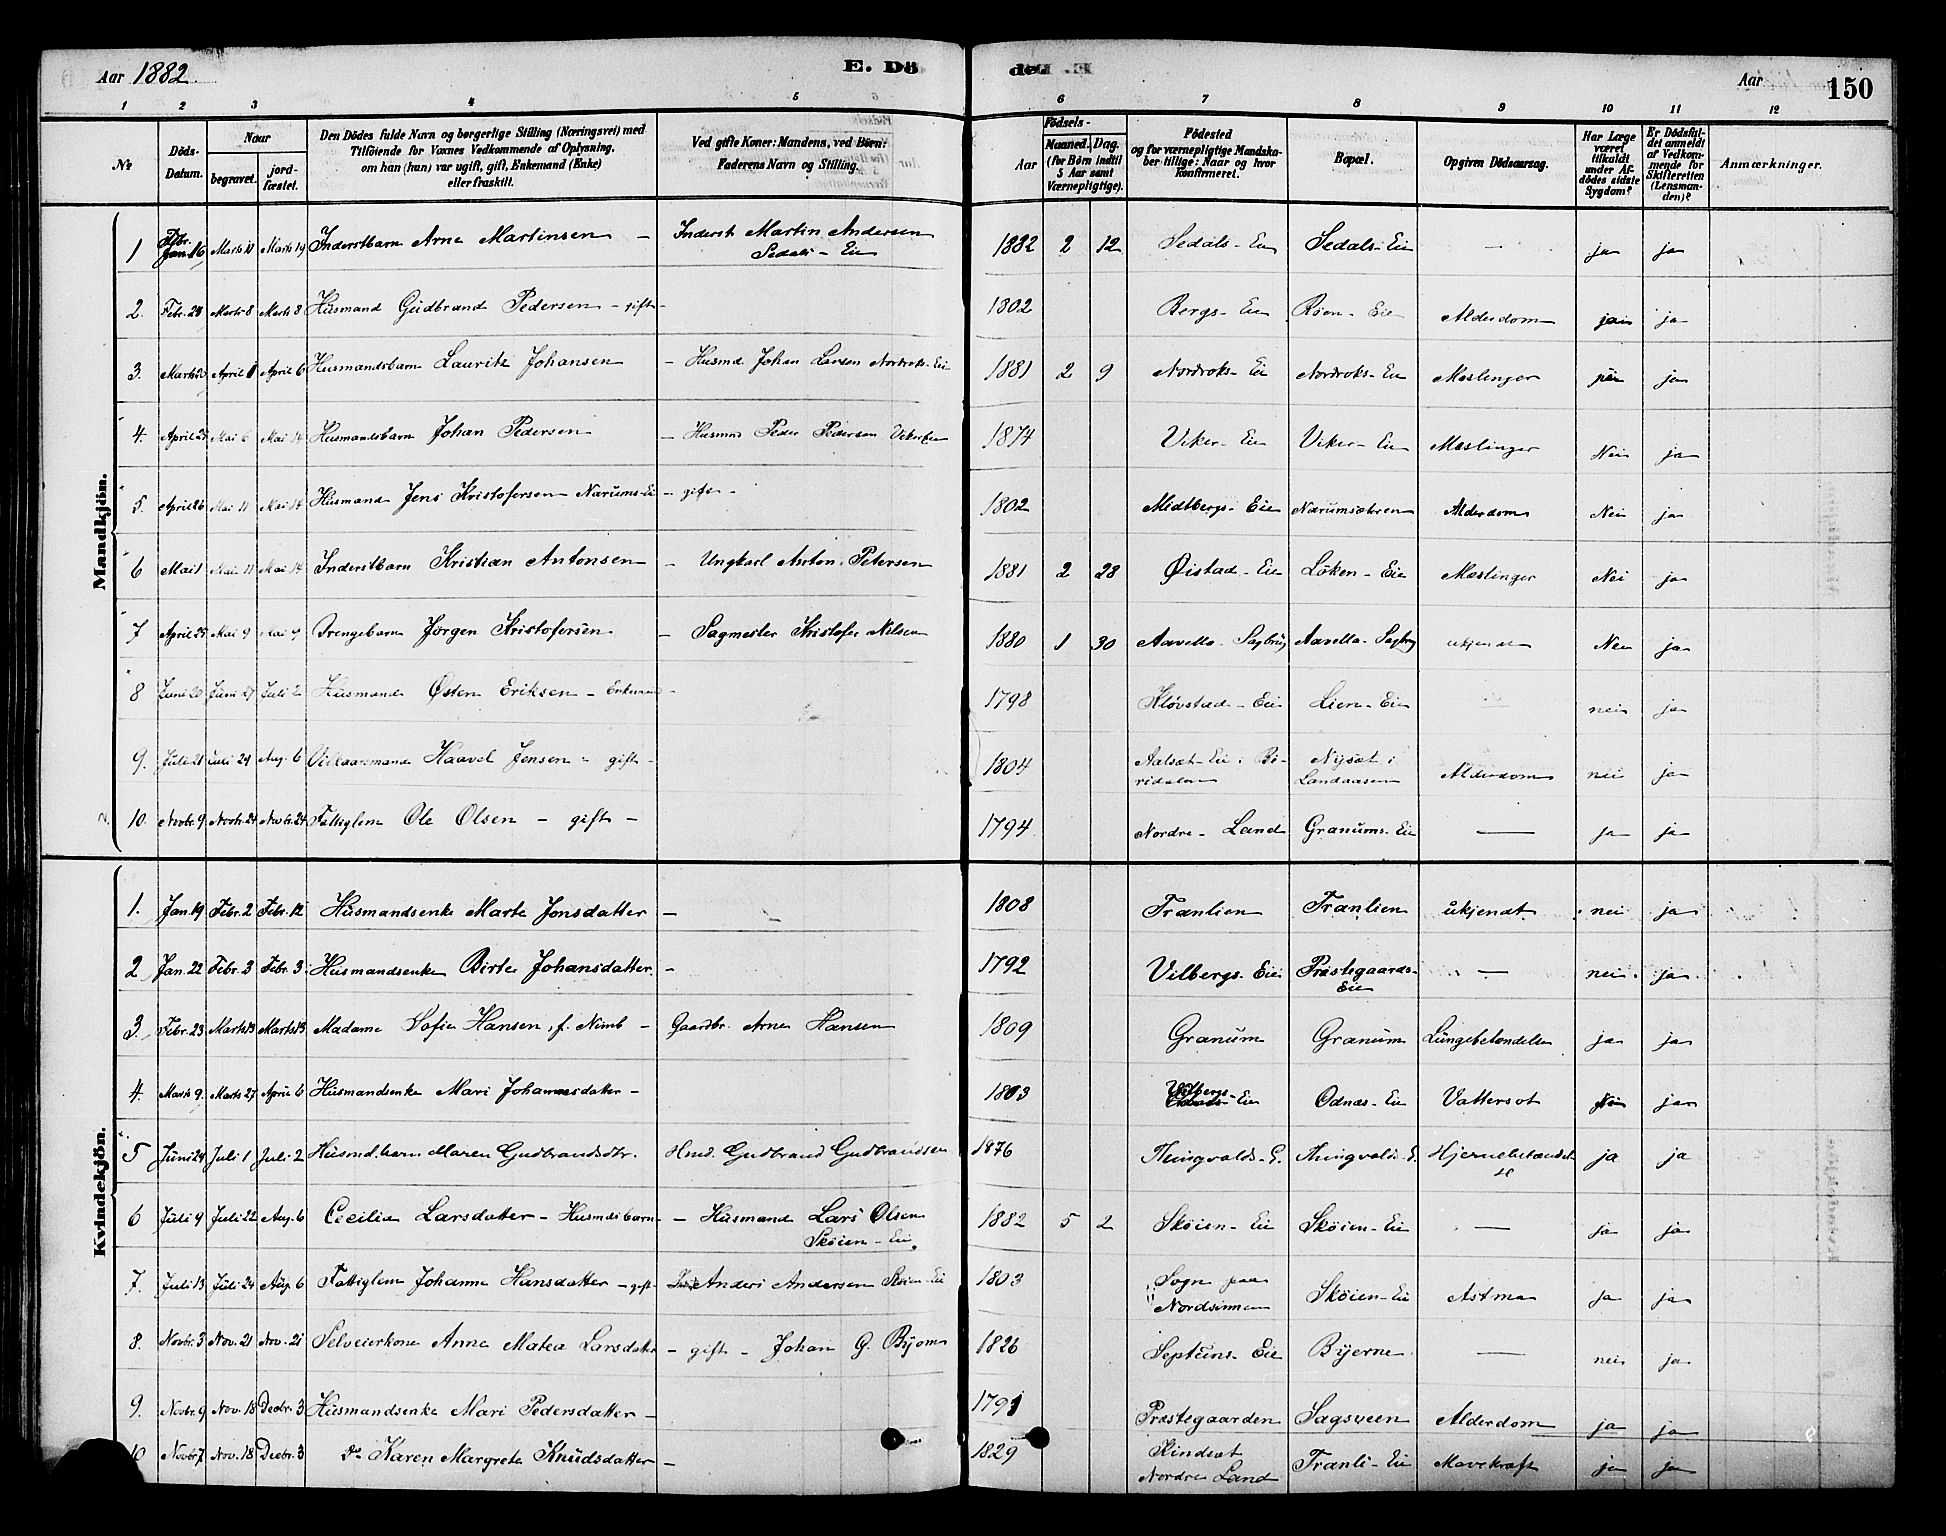 Aar 1882
E. Dö
de. E
Aar 150
1 2 3 4 5 6 7 8 9 10 11 12
No
Döds-Datum.
Naar
begravet.
jordfæstet.
Den Dödes fulde Navn og borgerlige Stilling (Næringsvei) med
Tilföiende for Voxnes Vedkommende af Oplysning,
om han (hun) var ugift, gift, Enkemand (Enke)
eller fraskilt.
Ved gifte Koner: Mandens, ved Börn:
Faderens Navn og Stilling.
Födsels-
Aar
Maaned. Dag.
(for Börn indtil
5 Aar samt
Værnepligtige).
Födested
og for værnepligtige Mandska-
ber tillige: Naar og hvor
konfirmeret.
Bopæl.
Opgiven Dödsaarsag.
Har Læge
været
tilkaldt
under Af-
dödes sidste
Sygdom?
Er Dödsfal-
det anmeldt
af Vedkom-
mende for
Skifteretten
(Lensman-
den)?
Anmærkninger.
Mandkjön.
1 Febr. 16 Marts 11 Marts 19 Inderstbarn Arne Martinsen – Inderst Martin Andersen Sedals – Eie 1882 2 12 Sedals – Eie Sedals – Eie — ja ja
2. Febr. 24 Marts 8 Marts 8 Husmand Gudbrand Pedersen – gift – 1802 Bergs – Eie Röen – Eie Alderdom ja
3. Marts 20 April 1 April 6 Husmandsbarn Lauritz Johansen – Husmd Johan Larsen Nordroks – Eie 1881 2 9 Nordroks – Eie Nordroks – Eie Meslinger ja
4. April 25 Mai 6 Mai 14 Husmandsbarn Johan Pedersen – Husmd Peder Pedersen Viker Eie 1874 Viker – Eie Viker – Eie Meslinger Nei ja
5. April 26 Mai 11 Mai 14 Husmand Jens Kristofersen Narums-Eie – gift – 1802 Midtbergs – Eie Narumsæteren Alderdom Nei ja
6 Mai 1 Mai 11 Mai 14 Inderstbarn Kristian Antonsen – Ungkarl Anton Petersen 1881 2 28 Øistad – Eie Löken – Eie Meslinger Nei ja
7 April 25 Mai 9 Mai 9 Drengebarn Jörgen Kristofersen – Sagmester Kristofer Nilsen 1880 1 30 Aavella Sagbrug Aavella Sagbrug ukjendt Nei ja
8 Juni 20 Juni 27 Juli 2 Husmand Østen Eriksen – Enkemand – 1798 Kløvstad – Eie Lien – Eie — nei ja
9. Juli 21 Juli 29 Aug. 6 Vilkaarsmand Haavel Jensen – gift – 1804 Aalsæt – Eie i Bi-ridalen Nysæt i Landaasen Alderdom nei ja
10. Novbr. 9 Novbr. 24 Novbr. 24 Fattiglem Ole Olsen – gift – 1794 Nordre – Land Granums – Eie — ja ja
Kvindekjön.
1. Jan. 19 Febr. 2 Febr. 12 Husmandsenke Marte Jonsdatter – 1808 Franlien Franlien ukjendt nei ja
2 Jan. 22 Febr. 3 Febr. 3 Husmandsenke Birte Johansdatter – 1792 Vilbergs – Eie Præstegaards-Eie — nei ja
3. Febr. 23 Marts 13 Marts 13 Madame Sofie Hansen, f. Nimb – Gaardbr. Arne Hansen 1809 Granum Granum Lungebetændelse ja ja
4. Marts 9. Marts 27 April 6 Husmandsenke Mari Johannesdatter – 1803 Vilbergs – Eie Odnæs – Eie Vattersot Nei ja
5 Juni 24 Juli 1 Juli 2 Husmd.barn Maren Gudbrandsdtr. Hmd. Gudbrand Gudbrandsen 1876 Thingvolds – E. Thingvolds – E. Hjernebetændelse ja ja
6 Juli 9 Juli 22 Aug. 6 Cecilia Larsdatter – Husmdsbarn – Husmand Lars Olsen Skøien – Eie 1882 5 2 Skøien – Eie Skøien – Eie — ja ja
7. Juli 13 Juli 24 Aug. 6 Fattiglem Johanne Hansdatter – gift – Anders Andersen Skøien – Eie 1803 Sogn paa Nordsinnen Skøien – Eie Astma ja ja
8. Novbr. 3 Nov. 21 Nov. 21 Selveierkone Anne Matea Larsdatter – gift – Johan G. Byom 1826 Septuns – Eie Byerne — nei ja
9. Novbr. 9 Nov. 18 Decbr. 3 Husmandsenke Mari Pedersdatter – 1791 Præstegaarden Sagsveen Alderdom ja ja
10 Novbr 7 Nov. 18 Decbr. 3 Do Karen Margrete Knudsdatter – 1829 Kindsæt Nordre Land Franli – Eie Mavekræft ja ja